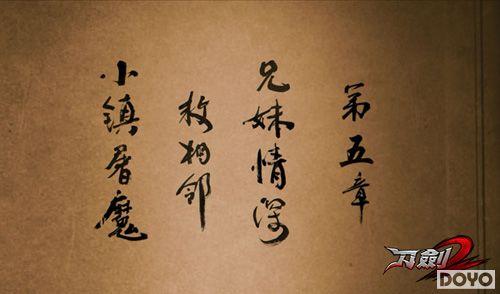 第五章
兄妹情深
救相邻
小镇屠魔
刀劍2
DOYO